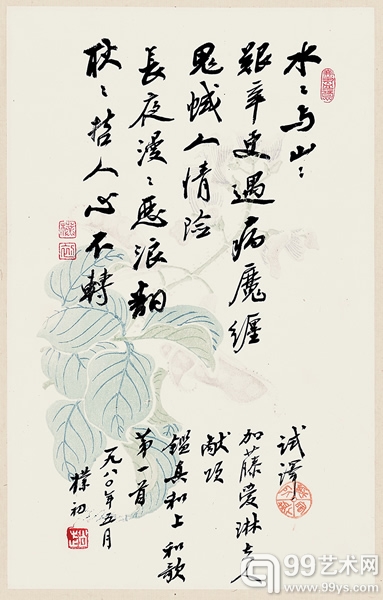 水々与山々
艰辛更遇病魔纏
鬼蜮人情险
長夜漫々恶浪翻
耿々哲人心不轉
试译
加藤爱琳
献颂
鑑真和上和歌
第一首
一九八〇年五月
樸初
99艺术网
99ys.com